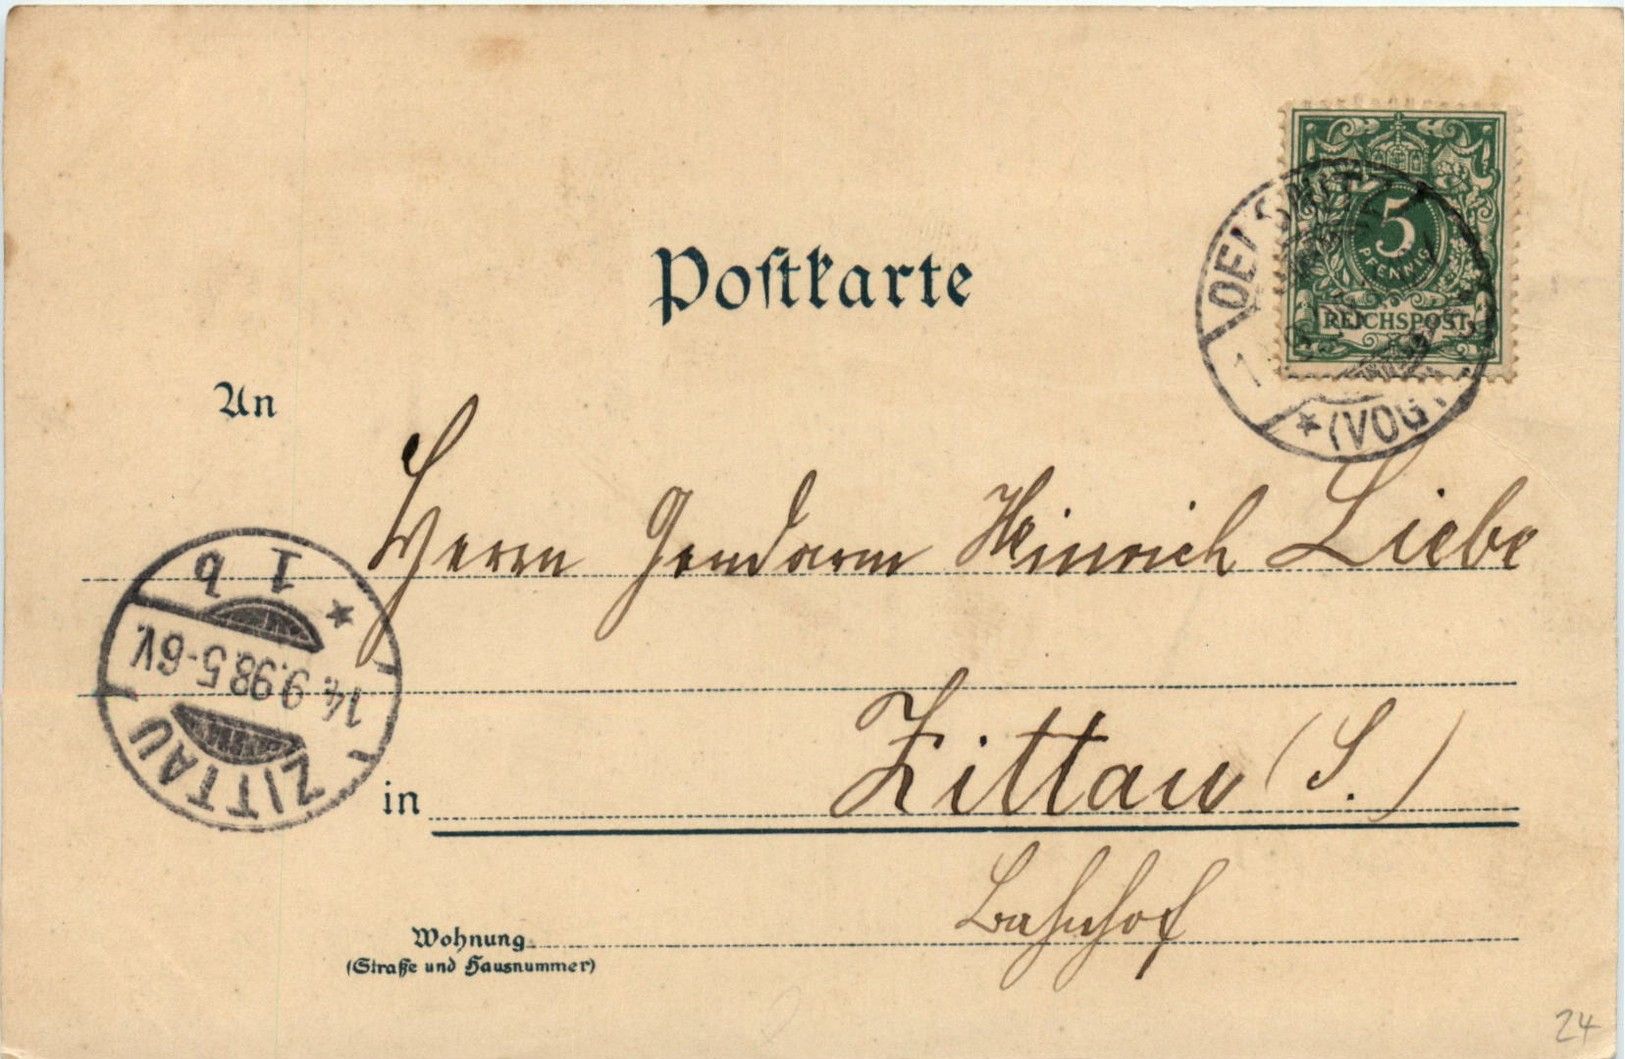 Postkarte
5
PFENNIG
REICHSPOST
OELSNITZ
* (VOGT
An
Herrn Gendarm Heinrich Liebe
1 b *
14.9.98.5-6V.
ZITTAU
in Zittau (S.)
Bahnhof
Wohnung
(Straße und Hausnummer)
24